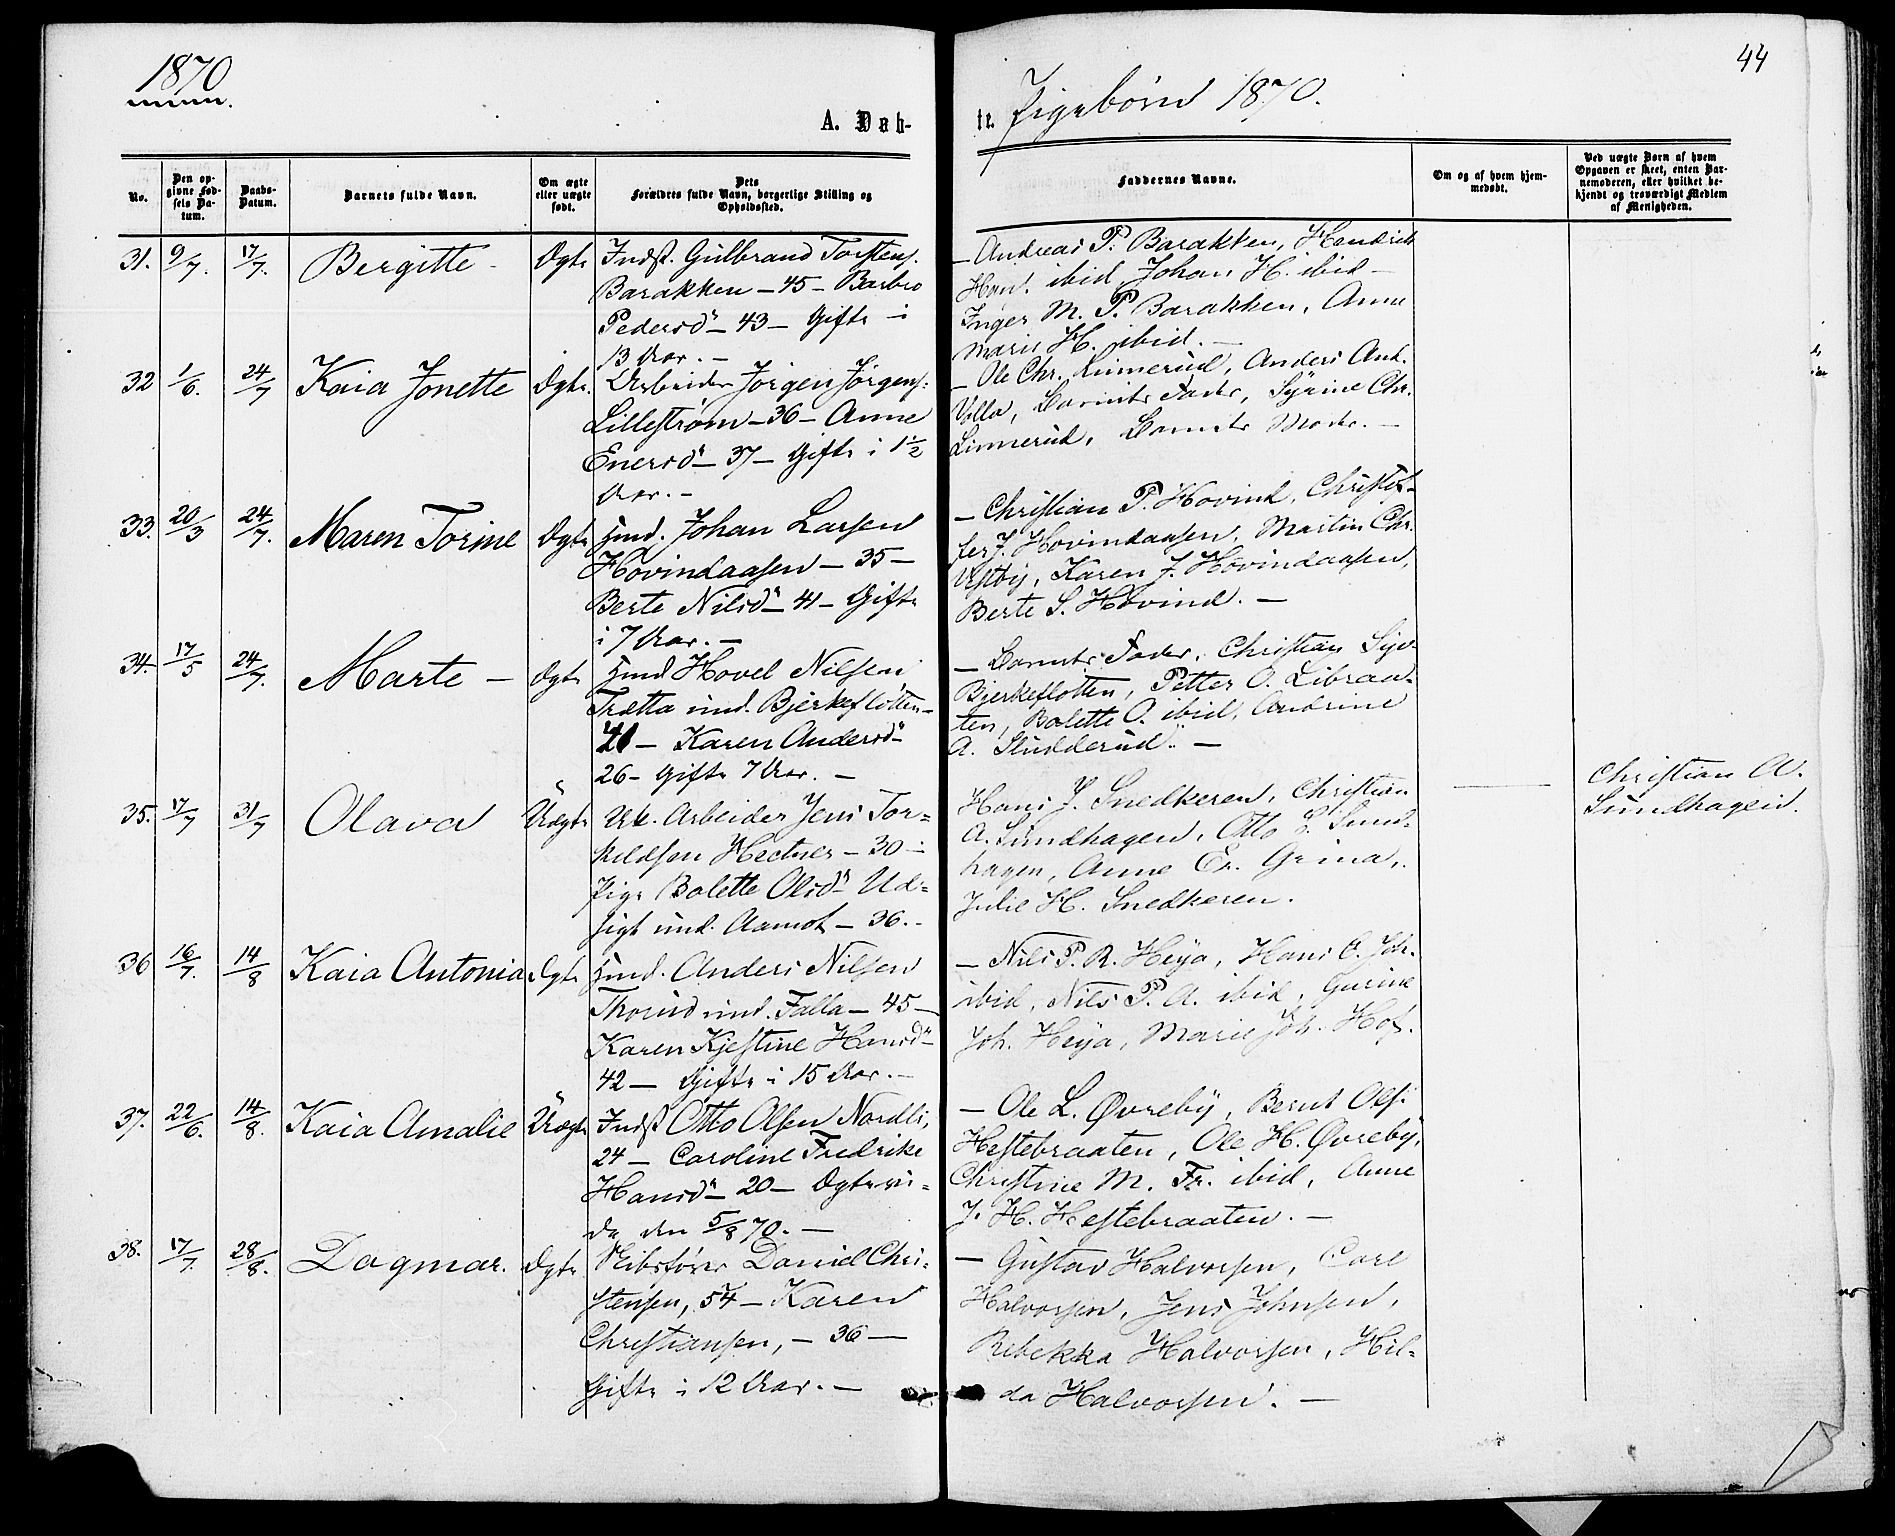 1870
44
A. Døb-
te. Pigebörn 1870.
No.
Den op-
givne Fød-
sels Da-
tum.
Daabs-
Datum.
Barnets fulde Navn.
Om ægte
eller uægte
født.
Dets
Forældres fulde Navn, borgerlige Stilling og
Opholdssted.
Faddernes Navne.
Om og af hvem hjem-
medøbt.
Ved uægte Børn af hvem
Opgaven er skeet, enten Bar-
nemoderen, eller hvilket be-
kjendt og troværdigt Medlem
af Menigheden.
31. 9/7. 17/7. Bergitte - Ægte
Indst. Gulbrand Torstens.
Barakken - 45 - Barbro
Pedersd - 43 - Gifte i
13 Aar. -
- Andreas P. Barakken, Hendrik
Han. ibid, Johan H. ibid -
Inger M. P. Barakken, Anne
Marie H. ibid. -
32 1/6. 24/7 Kaia Jonette Ægte.
Arbeider Jörgen Jörgens.
Lilleström - 36 - Anne
Enersd - 37 - Gifte i 1 1/2
Aar. -
- Ole Chr. Linnerud, Anders And.
Volla, Barnets Fader, Syrine Chr.
Linnerud, Barnets Moder. -
33. 20/3 24/7. Maren Torine Ægte
Hmd. Johan Larsen
Hovindaasen - 35 -
Berte Nilsd - 41 - Gifte
i 7 Aar. -
- Christian P. Hovind, Christof-
fer J. Hovindaasen, Martin Chr.
Vestby, Karen J. Hovindaasen,
Berte S. Hovind. -
34. 17/5 24/7. Marte - Ægte
Hmd Hovel Nilsen
Trætta und. Bjerkeflötten -
41 - Karen Andersd -
26 - Gifte 7 Aar. -
- Barnets Fader, Christian Syv.
Bjerkeflotten, Petter O. Libraa-
ten, Bolette O. ibid, Andrine
A. Studderud. -
35. 17/7 31/7 Olava Uægte
Uk. Arbeider Jens Tor-
kildsen Hectner - 30 -
Pige Bolette Olsd Ud-
sigt und. Aamot - 36. -
Hans J. Snedkeren, Christian
A. Sundhagen, Otto L. Sund-
hagen, Anne Er. Grina,
Julie H. Snedkeren.
Christian A.
Sundhagen.
36 16/7. 14/8 Kaia Antonia Ægte
Hmd. Anders Nilsen
Thorud und. Falla - 45 -
Karen Kjestine Hansd -
42 - Gifte i 15 Aar. -
- Nils P. R. Heya, Hans O. Joh.
ibid, Nils P. A. ibid, Gurine
Joh. Heya, Marie Joh. Hof.
37. 22/6. 14/8. Kaia Amalie Uægte
Indst Otto Olsen Nordli,
24 - Caroline Fredrike
Hansd - 20 - Ægtevi-
de den 5/8 70. -
- Ole L. Øvreby, Bernt Ols.
Hestebraaten, Ole H. Øvreby,
Christine M. Fr. ibid, Anne
J. H. Hestebraaten. -
38. 17/7. 28/8. Dagmar. Ægte
Skibsförer Daniel Chri-
stensen, 54 - Karen
Christiansen, - 36 -
Gifte i 12 Aar. -
- Gustav Halvorsen, Carl
Halvorsen, Jens Johnsen,
Rebekka Halvorsen, Hil-
da Halvorsen. -